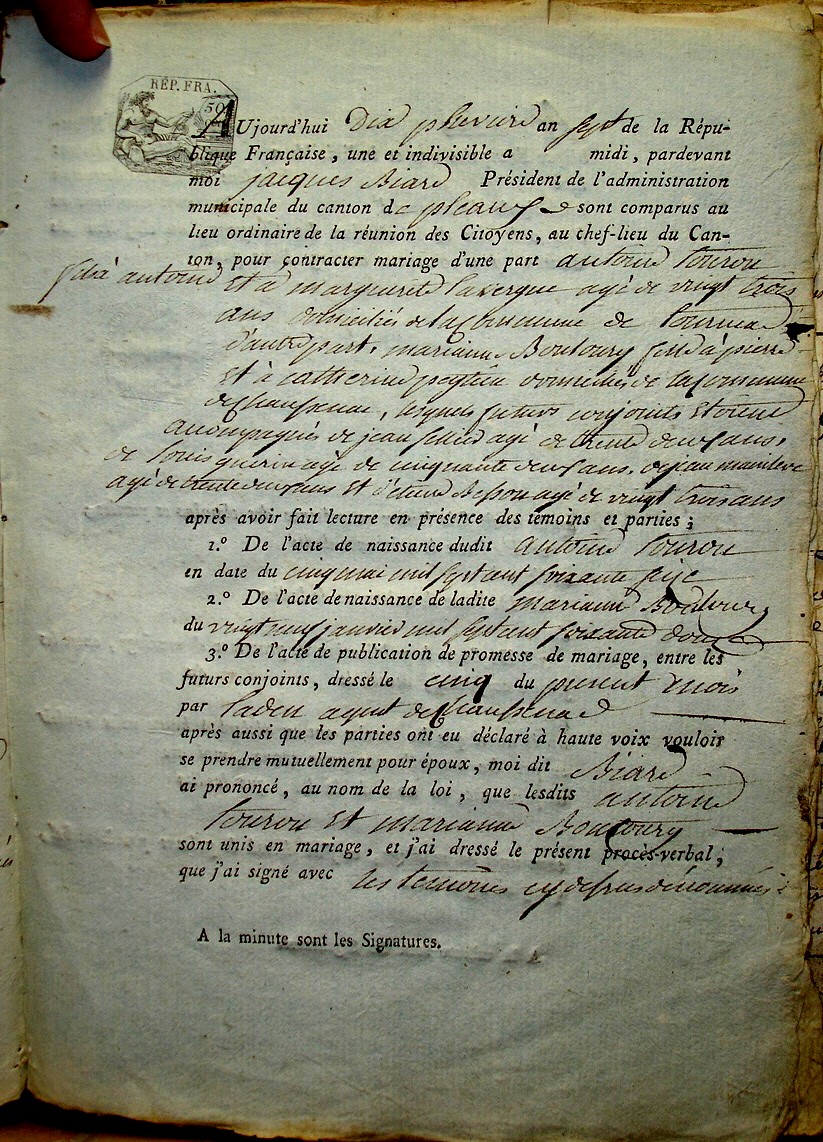 RÉP. FRA.
50
AUjourd'hui Dix pluviose an sept de la Répu-
blique Française, une et indivisible a midi, pardevant
moi jacques Biard Président de l'administration
municipale du canton de pleaux sont comparus au
lieu ordinaire de la réunion des Citoyens, au chef-lieu du Can-
ton, pour contracter mariage d'une part antoine tourou
fils à antoine Et à marguerite lavergne agé de vingt trois
ans domiciliés de la Commune de tourniac
d'autre part, marianne Boutoury fille à pierre
Et à catherine domiciliés de la commune
de chaussenac, lesquels futurs conjoints Etoient
accompagnés de jean agé de trente deux ans,
de louis guerin agé de cinquante deux ans, de jean
agé de trente deux ans Et d'étienne agé de vingt trois ans
après avoir fait lecture en présence des témoins et parties;
1.º De l'acte de naissance dudit antoine tourou
en date du cinq mai mil sept cent soixante seize
2.º De l'acte de naissance de ladite marianne Boutoury
du vingt neuf janvier mil sept cent soixante douze
3.º De l'acte de publication de promesse de mariage, entre les
futurs conjoints, dressé le cinq du present mois
par laden agent de chaussenac
après aussi que les parties ont eu déclaré à haute voix vouloir
se prendre mutuellement pour époux, moi dit Biard
ai prononcé, au nom de la loi, que lesdits antoine
tourou Et marianne Boutoury
sont unis en mariage, et j'ai dressé le présent procès-verbal;
que j'ai signé avec les temoins cy dessus denommés
A la minute sont les Signatures.